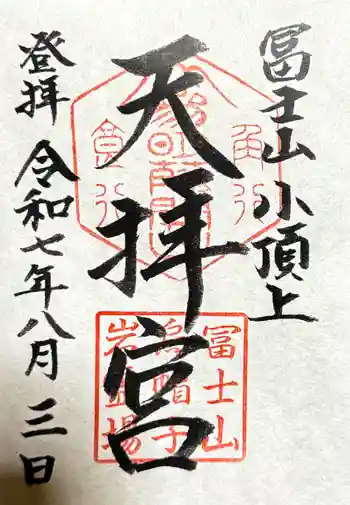 冨士山小頂上
天拝宮
登拝 令和七年八月三日
冨士山